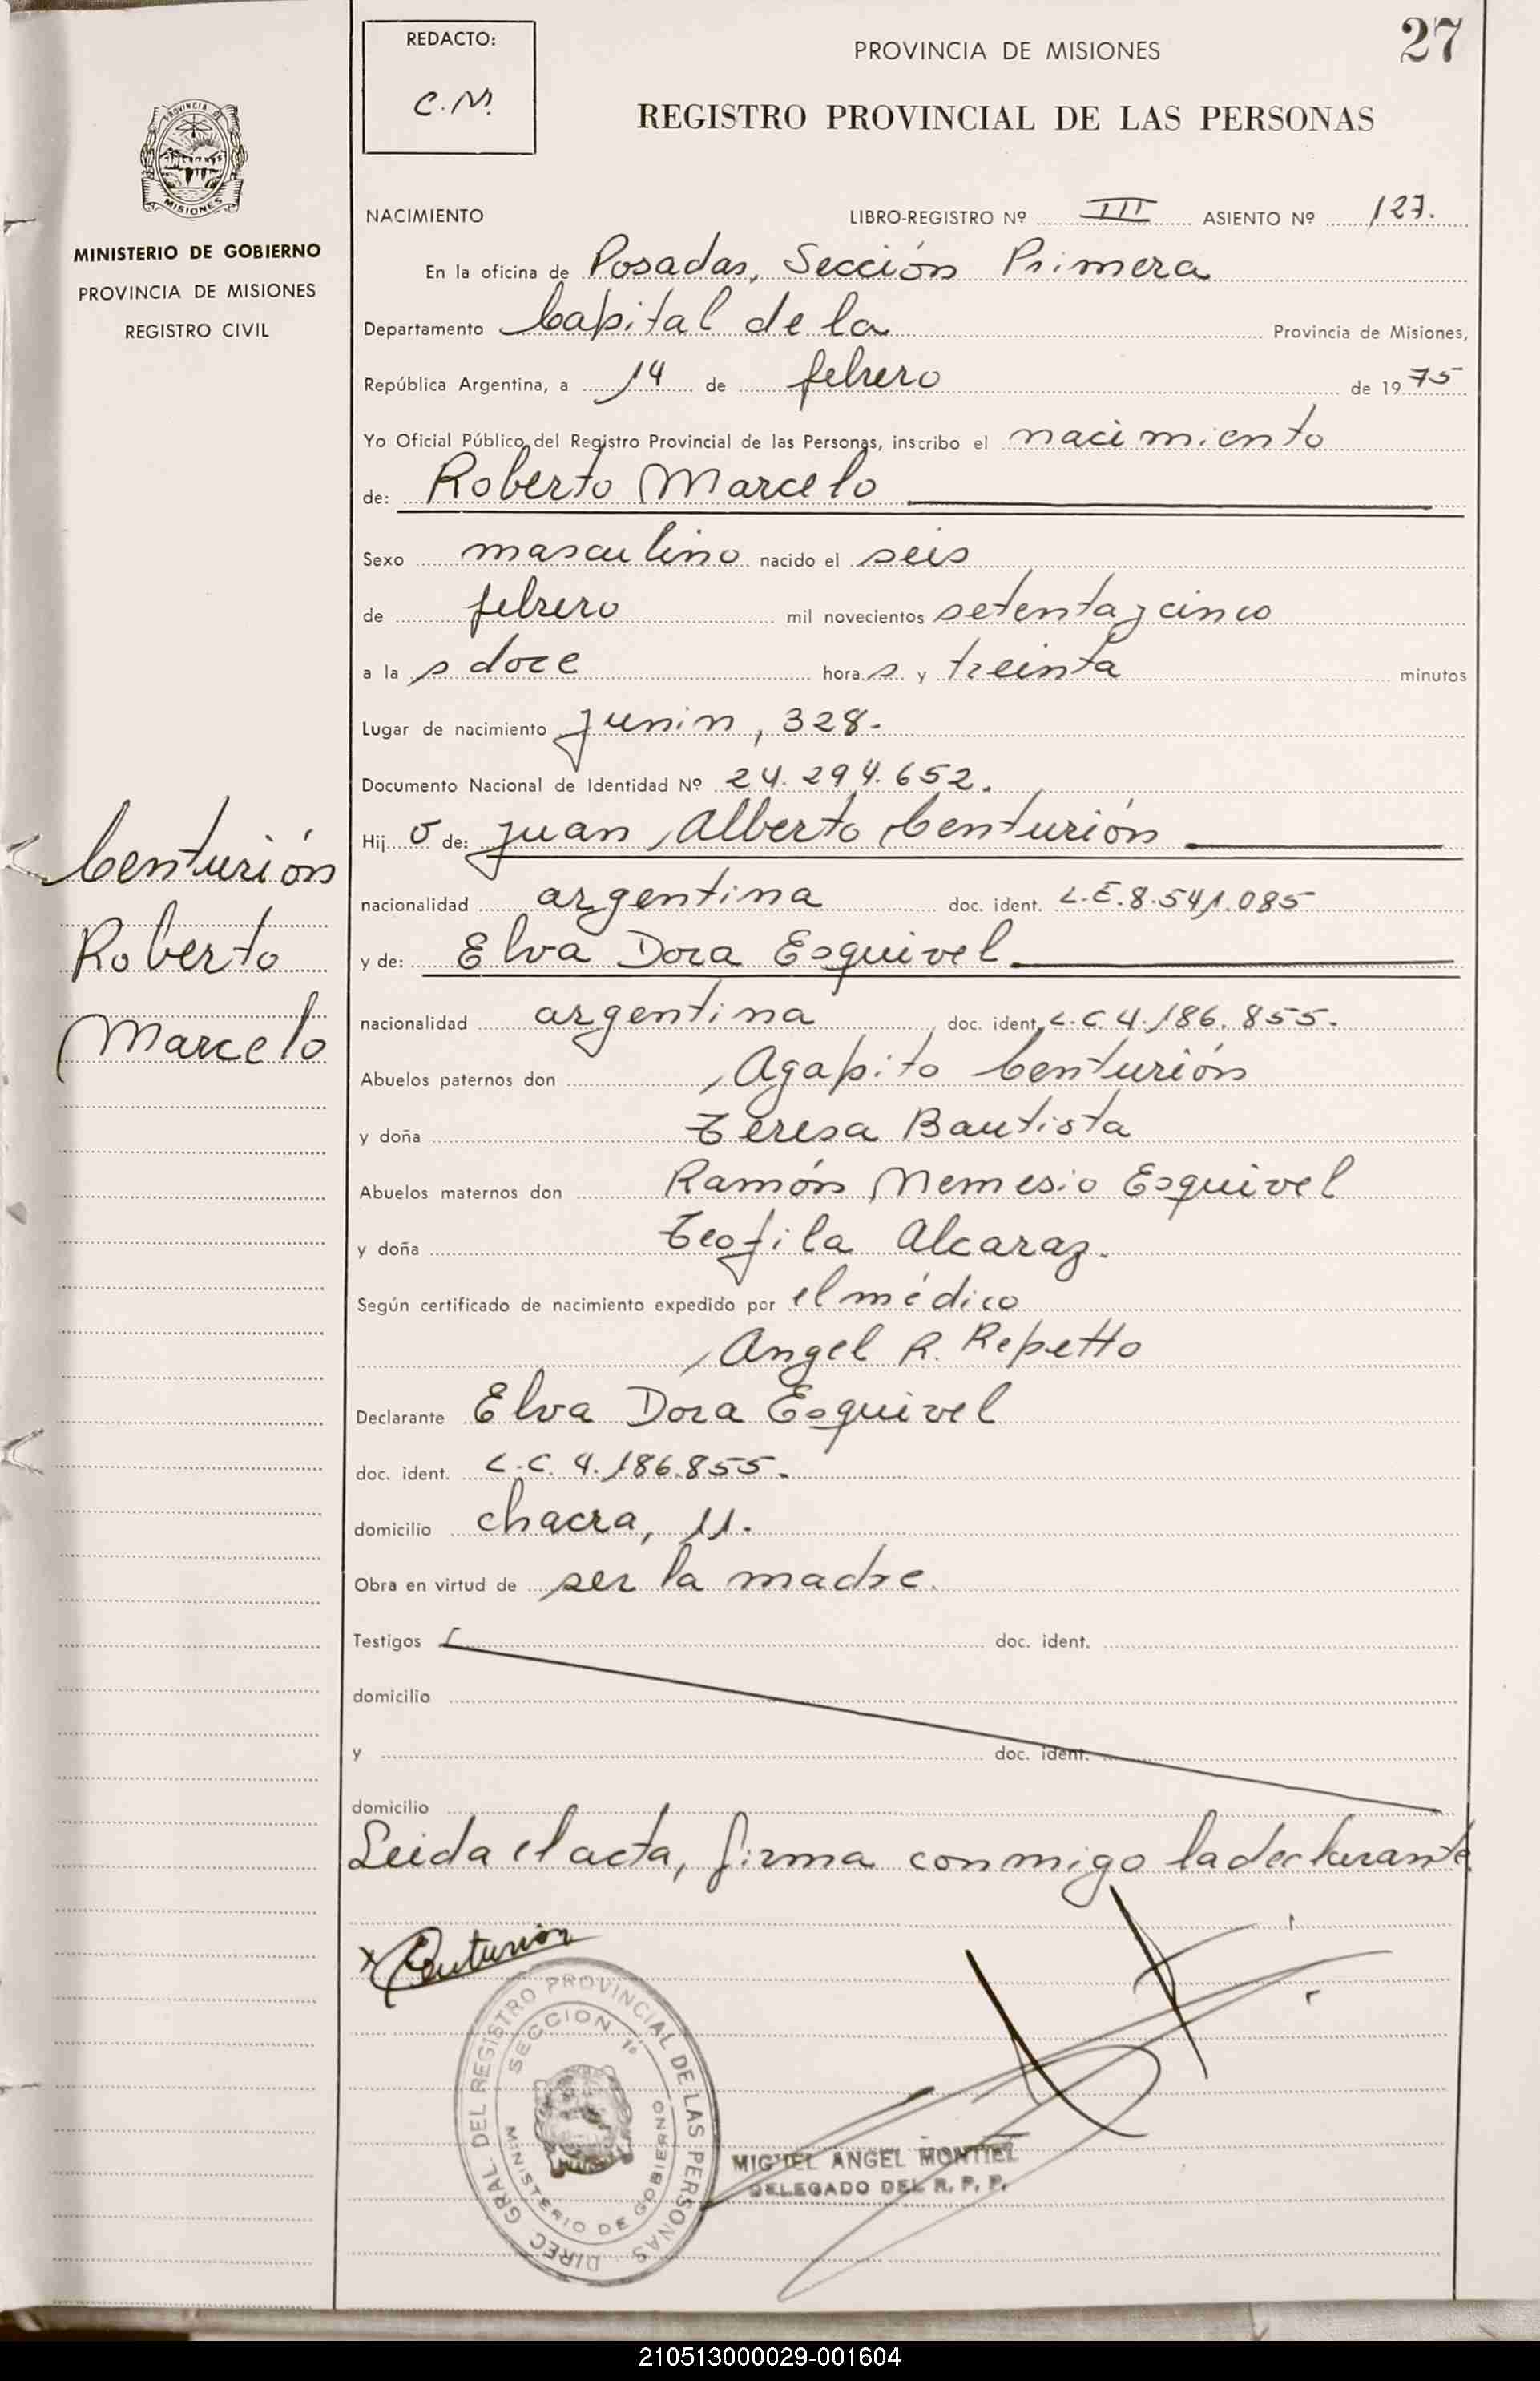 27
REDACTO:
C.M.
PROVINCIA DE MISIONES
REGISTRO PROVINCIAL DE LAS PERSONAS
PROVINCIA DE
MISIONES
MINISTERIO DE GOBIERNO
PROVINCIA DE MISIONES
REGISTRO CIVIL
NACIMIENTO LIBRO-REGISTRO Nº III ASIENTO Nº 127.
En la oficina de Posadas, Sección Primera
Departamento Capital de la Provincia de Misiones,
República Argentina, a 14 de febrero de 1975
Yo Oficial Público del Registro Provincial de las Personas, inscribo el nacimiento
de: Roberto Marcelo
Sexo masculino nacido el seis
de febrero mil novecientos setenta y cinco
a la s doce hora s y treinta minutos
Lugar de nacimiento Junin, 328.
Documento Nacional de Identidad Nº 24.294.652.
Hij o de: Juan Alberto Centurión
nacionalidad argentina doc. ident. L.E. 8.541.085
y de: Elva Dora Esquivel
nacionalidad argentina doc. ident. L.C. 4.186.855.
Abuelos paternos don Agapito Centurión
y doña Teresa Bautista
Abuelos maternos don Ramón Nemesio Esquivel
y doña Teofila Alcaraz.
Según certificado de nacimiento expedido por el médico
Angel R. Repetto
Declarante Elva Dora Esquivel
doc. ident. L.C. 4.186.855.
domicilio chacra, 11.
Obra en virtud de ser la madre.
Testigos doc. ident.
domicilio
y doc. ident.
domicilio
Leida el acta, firma conmigo la declarante
Centurión
Roberto
Marcelo
x Centurión
DIREC. GRAL. DEL REGISTRO PROVINCIAL DE LAS PERSONAS
SECCION 1ª
MINISTERIO DE GOBIERNO
MIGUEL ANGEL MONTIEL
DELEGADO DEL R. P. P.
210513000029-001604